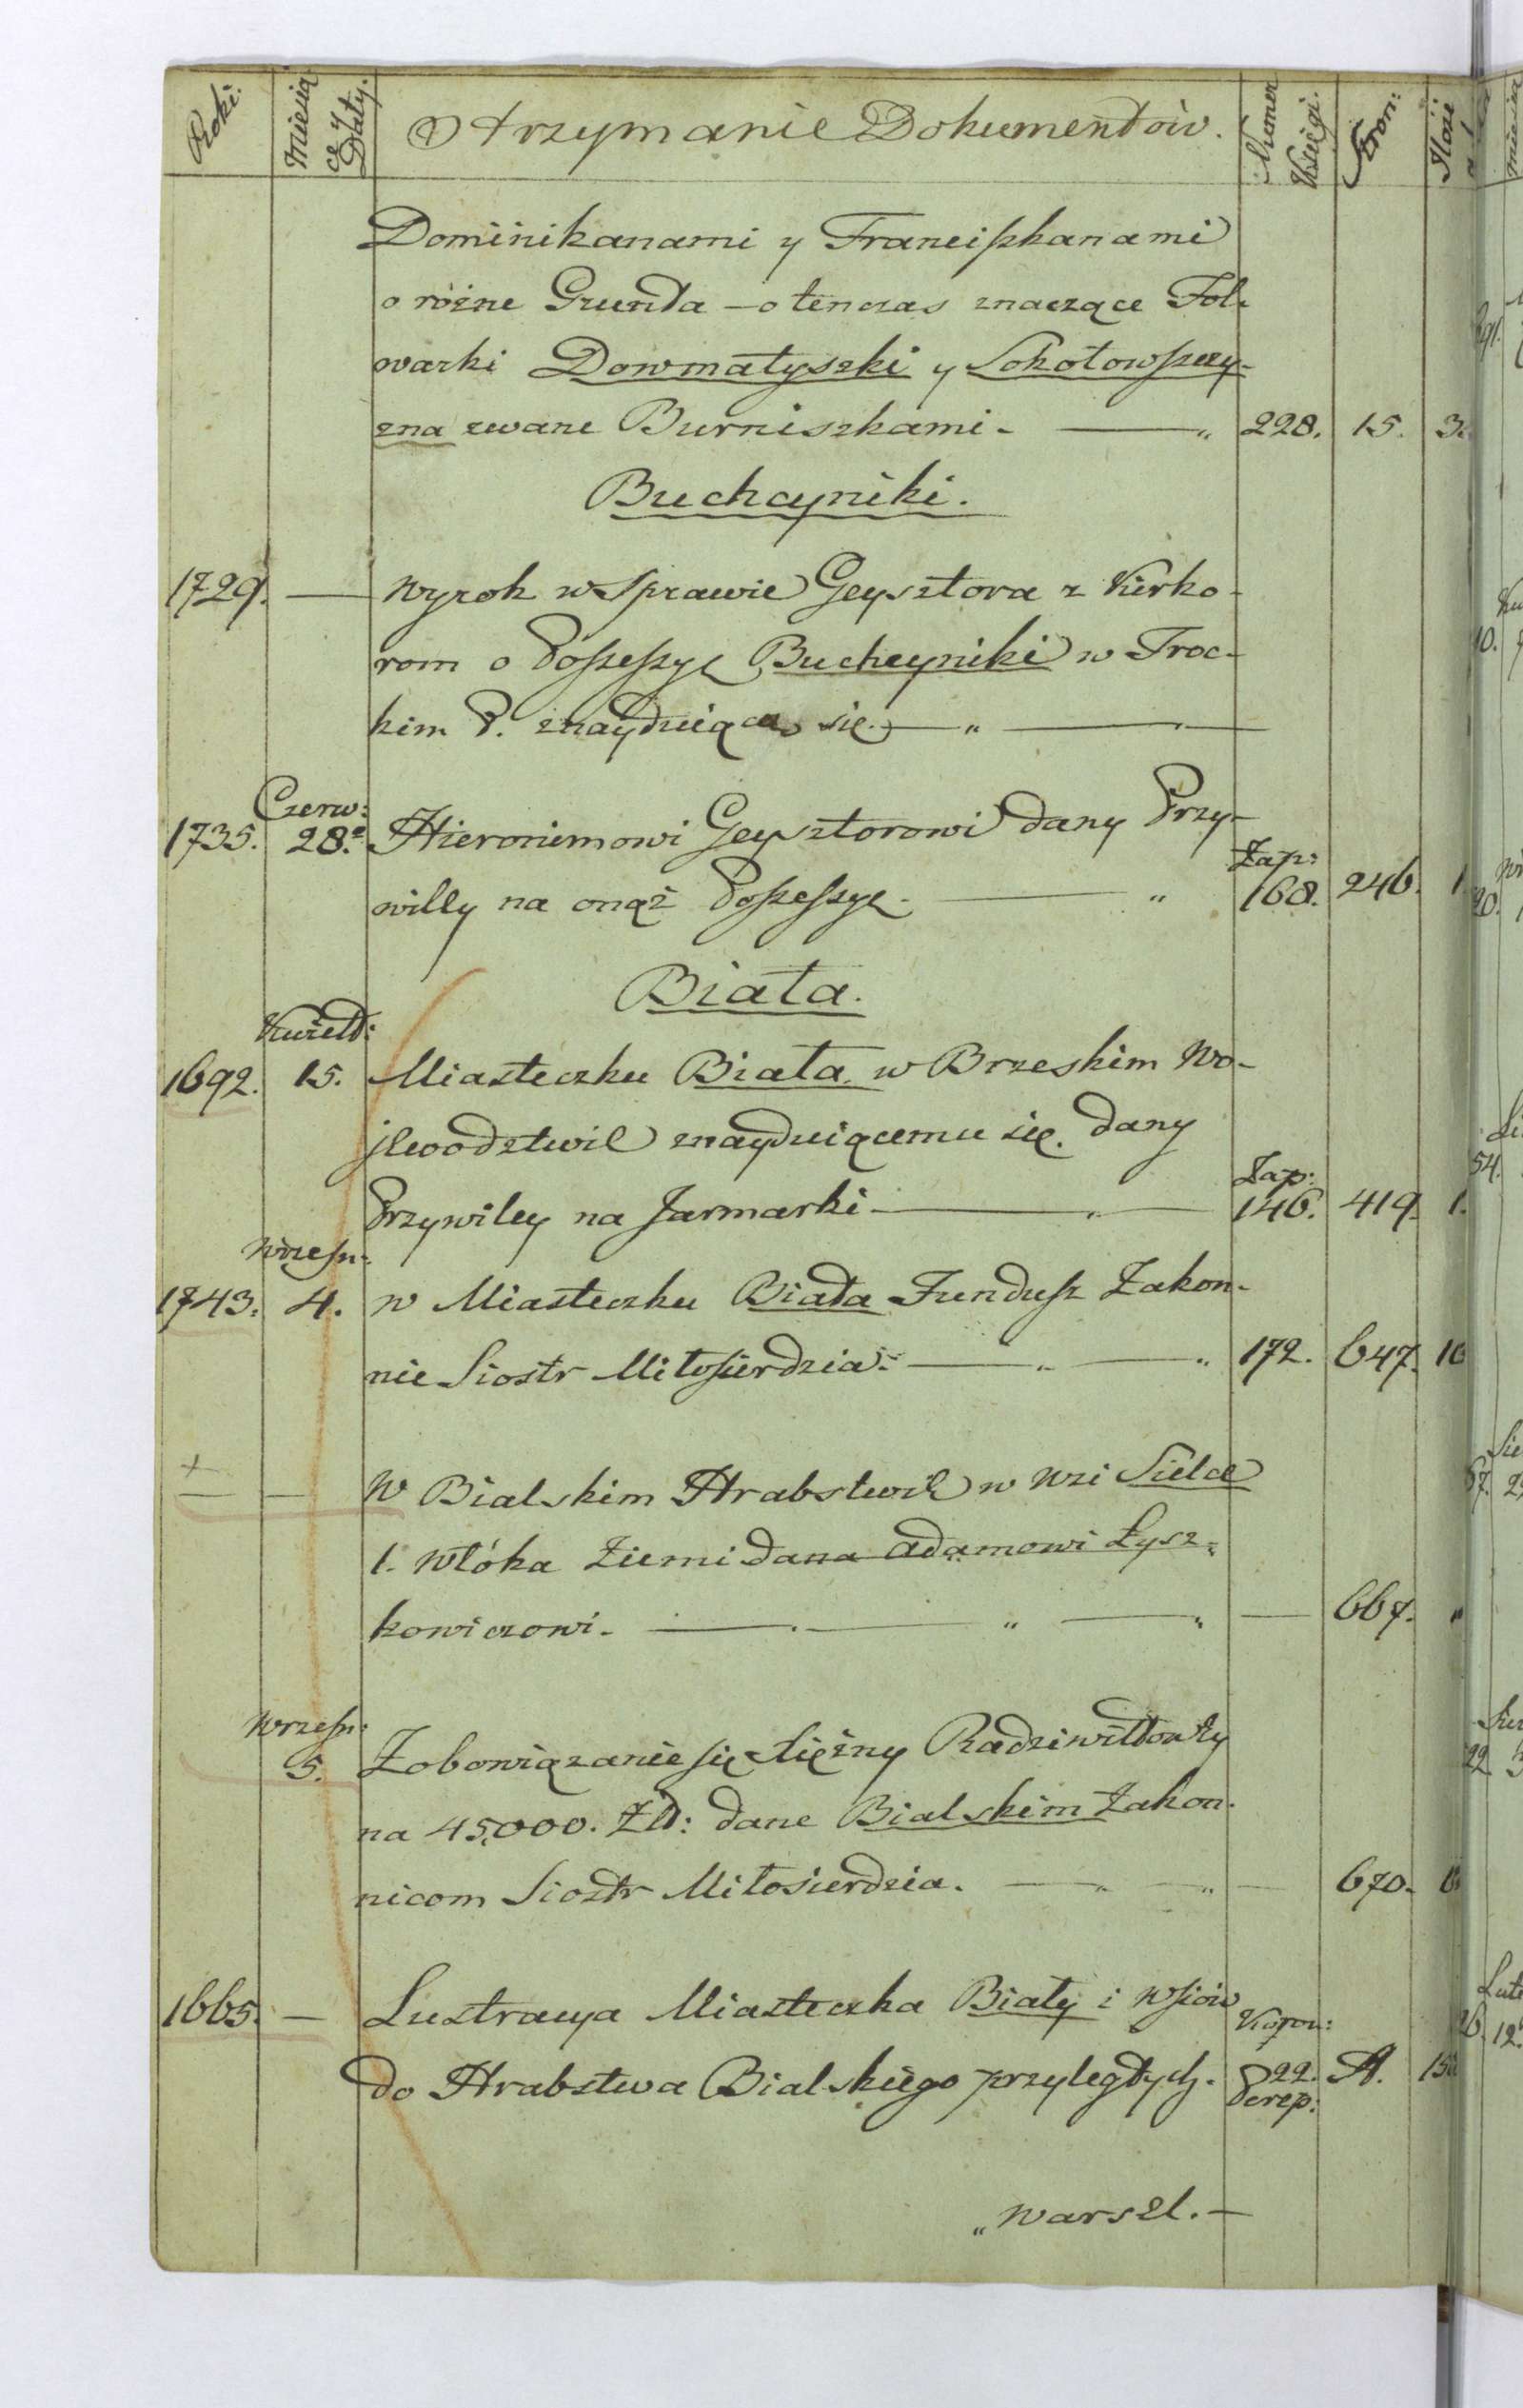 Roki.
Miesią
ce y
Daty.
Otrzymanie Dokumentów.
Numer
Księgi.
Stron:
Ilość
Dominikanami y Franciszkanami
o różne Grunta – o tenczas znaczące Fol-
warki Dowmatyszki y Sokołowszczy-
zna zwane Burniszkami. — „ 228. 15. 3.
Buchcyniki.
1729. — Wyrok w Sprawie Geysztora z Kirko-
rom o Possessyę Buchcyniki w Troc-
kim P. znayduiąca się. — „ —
Czerw:
1735. 28. Hieronimowi Geysztorowi dany Przy-
willy na onąż Possessyę. — „ Zap: 168. 246. 1.
Biała.
Kwiet:
1692. 15. Miasteczku Biała w Brzeskim Wo-
jewodztwie znayduiącemu się. dany
Przywiley na Jarmarki — „ — Zap: 146. 419. 1.
Wrześn:
1743. 4. w Miasteczku Biała Fundusz Zakon-
nie Siostr Miłosierdzia. — „ — „ 172. 647. 10
+
— — W Bialskim Hrabstwie w Wsi Sielce
1. Włóka Ziemi dana Adamowi Łysz-
kowiczowi. — . — „ — „ — 667. „
Wrześn:
5. Zobowiązanie się Xiężny Radziwiłłowży
na 45,000. Zł: dane Bialskim Zakon-
nicom Siostr Miłosierdzia. — „ — „ — 670.
1665. — Lustracya Miasteczka Biały i Wsiow
do Hrabstwa Bialskiego przyległych. Koron: 22. Perep: A. 15
„ Warszl. —